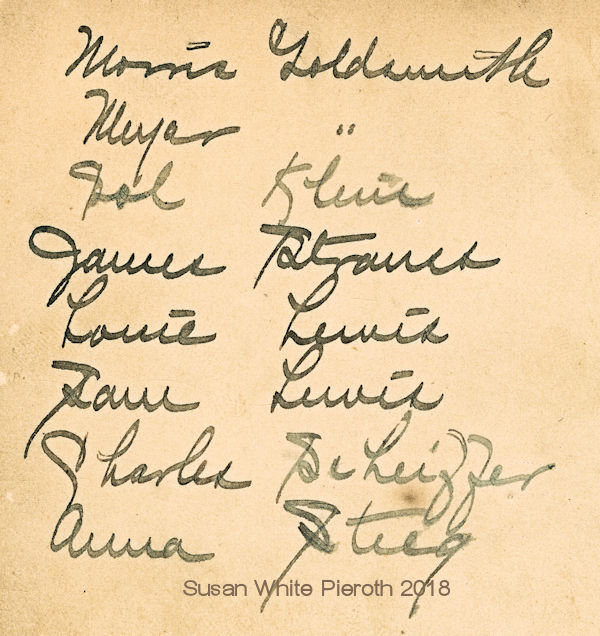 Morris Goldsmith
Meyar "
Sol Kline
James Strauss
Louie Lewis
Sam Lewis
Charles Scheizzer
Anna Stieg
Susan White Pieroth 2018